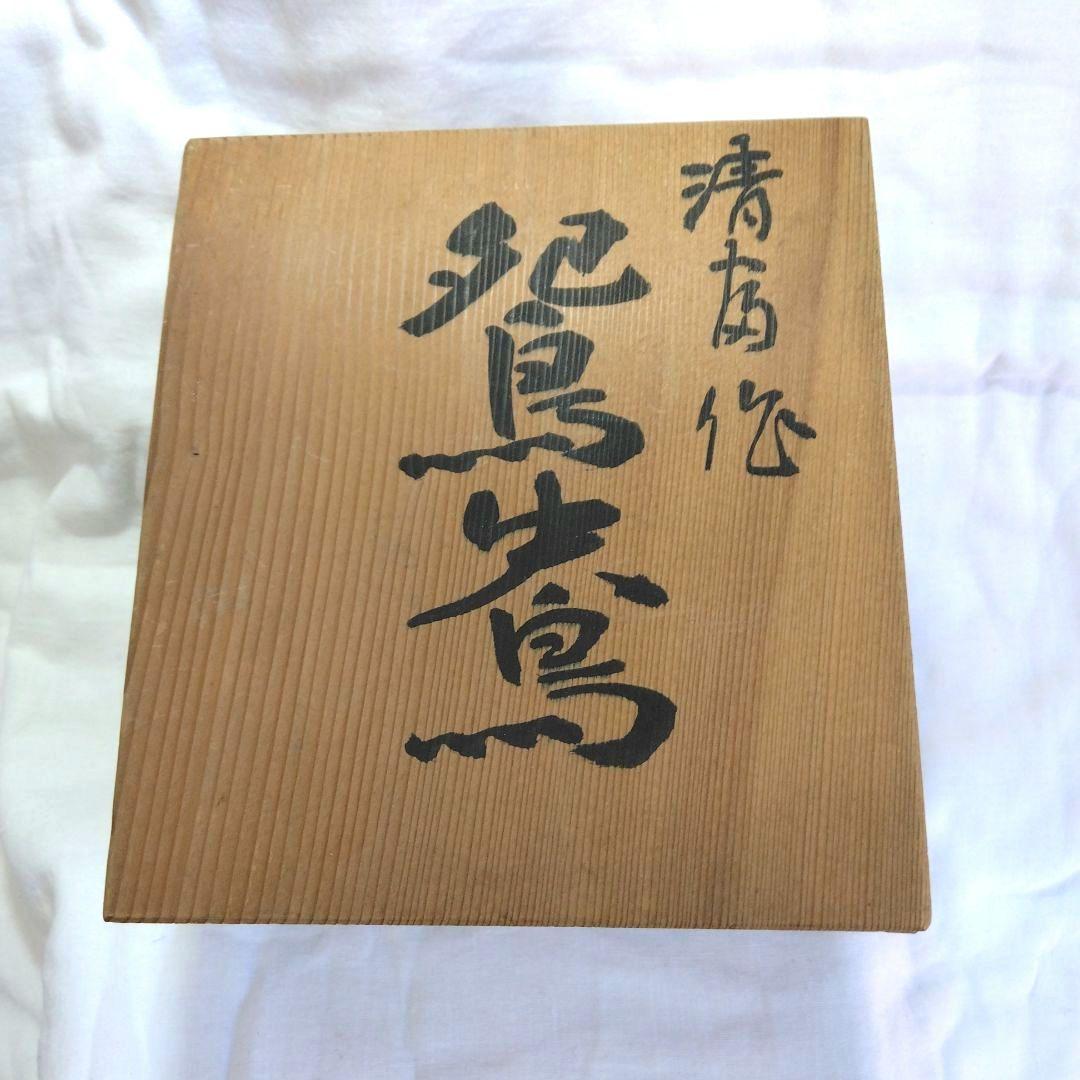 清斎作
鴛鴦